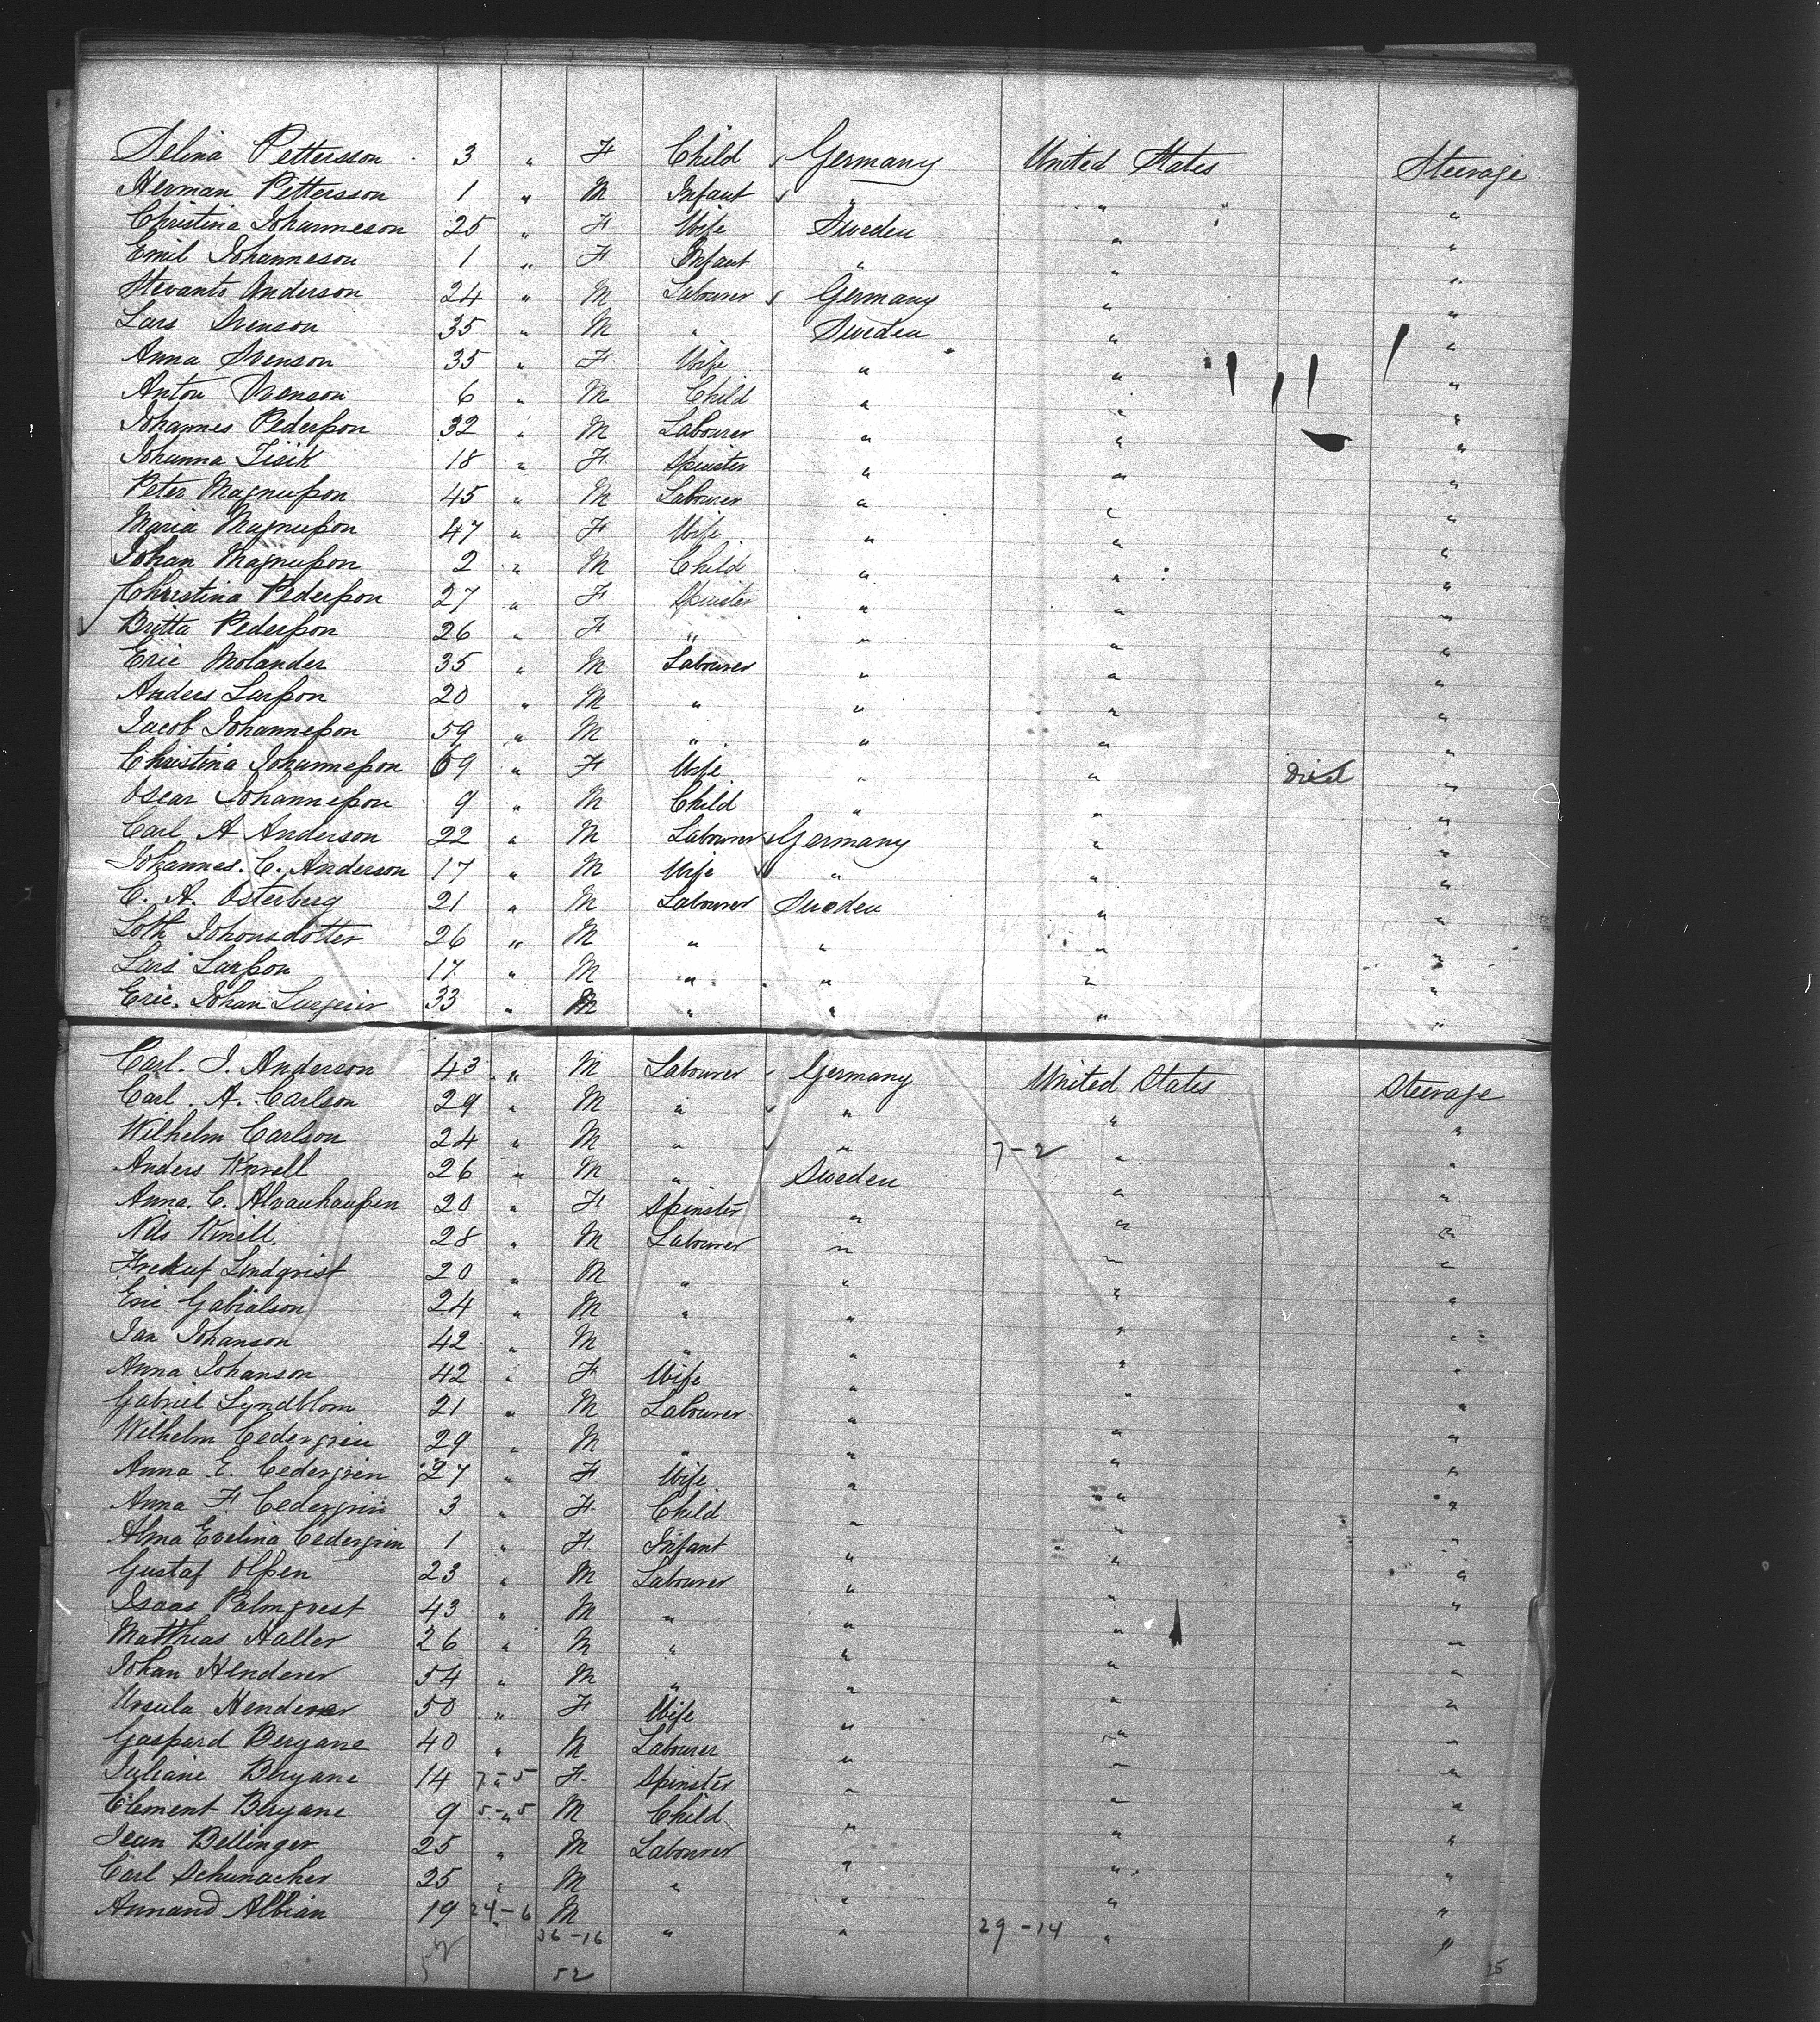 Selina Pettersson 3 " F Child Germany United States Steerage
Herman Pettersson 1 " M Infant " " "
Christina Johanneson 25 " F Wife Sweden " "
Emil Johanneson 1 " F Infant " " "
Anderson 24 " M Labourer Germany " "
Lars Svenson 35 " M " Sweden " "
Anna Svenson 35 " F Wife " " "
Anton Svenson 6 " M Child " " "
Johannes Pederson 32 " M Labourer " " "
Johanna 18 " F Spinster " " "
Peter Magnusson 45 " M Labourer " " "
Maria Magnusson 47 " F Wife " " "
Johan Magnusson 2 " M Child " " "
Christina Pedersson 27 " F Spinster " " "
Britta Pedersson 26 " F " " " "
Eric Molander 35 " M Labourer " " "
Anders Larsson 20 " M " " " "
Jacob Johannesson 59 " M " " " "
Christina Johannesson 69 " F Wife " " Died "
Oscar Johannesson 9 " M Child " " "
Carl A Anderson 22 " M Labourer Germany " "
Johannes. C. Anderson 17 " M Wife " " "
C. A. Osterberg 21 " M Labourer Sweden " "
Loth Johonsdotter 26 " M " " " "
Lars Larsson 17 " M " " " "
Eric. Johan 33 " M " " " "
Carl. J. Anderson 43 " M Labourer Germany United States Steerage
Carl. A. Carlson 29 " M " " " "
Wilhelm Carlson 24 " M " " 7-2 " "
Anders 26 " M " Sweden " "
Anna. C. 20 " F Spinster " " "
Nils 28 " M Labourer " " "
Lindqvist 20 " M " " " "
Eric Gabialson 24 " M " " " "
Jan Johanson 42 " M " " " "
Anna Johanson 42 " F Wife " " "
Gabriel Lyndblom 21 " M Labourer " " "
Wilhelm Cedergren 29 " M " " " "
Anna E. Cedergren 27 " F Wife " " "
Anna F. Cedergrin 3 " F Child " " "
Alma Evelina Cedergrin 1 " F. Infant " " "
Gustaf Olssen 23 " M Labourer " " "
Isaas Palmqvest 43 " M " " " "
Matthias Haller 26 " M " " " "
Johan Henderer 54 " M " " " "
Ursula Henderer 50 " F Wife " " "
Gaspard Bergane 40 " M Labourer " " "
Juliane Bergane 14 7-5 F. Spinster " " "
Clement Bergane 9 5-5 M Child " " "
Jean Bellinger 25 " M Labourer " " "
Carl Schumacher 25 " M " " " "
Annand Albian 19 24-6 M " " 29-14 " "
36-16
52
25